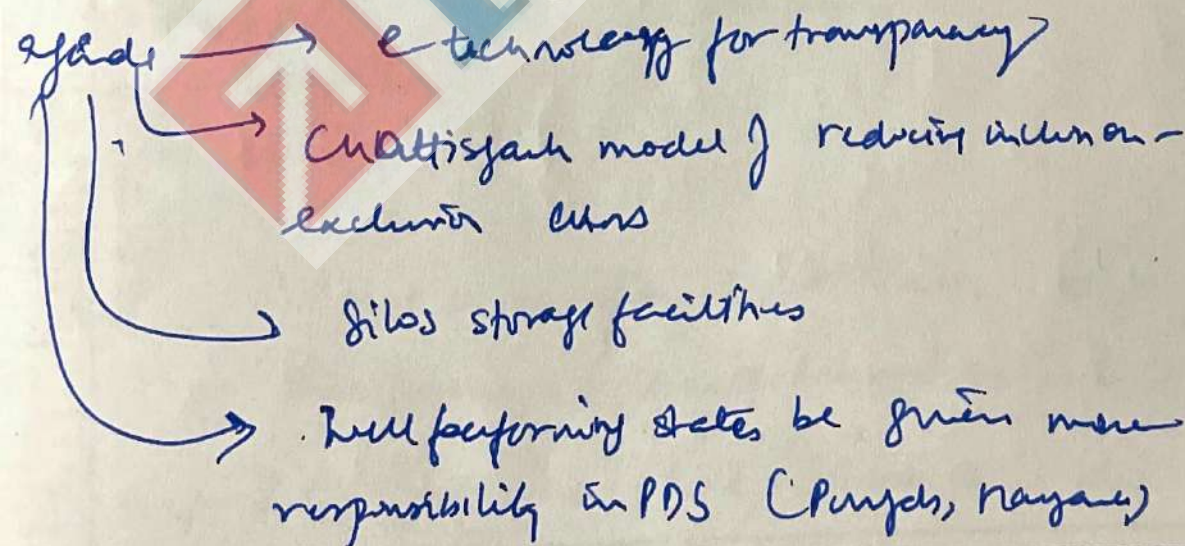 e technology for transparency
Chattisgarh model of reducing inclusion-
exclusion errors
Silos storage facilities
Well performing states be given more
responsibility in PDS (Punjab, Haryana)